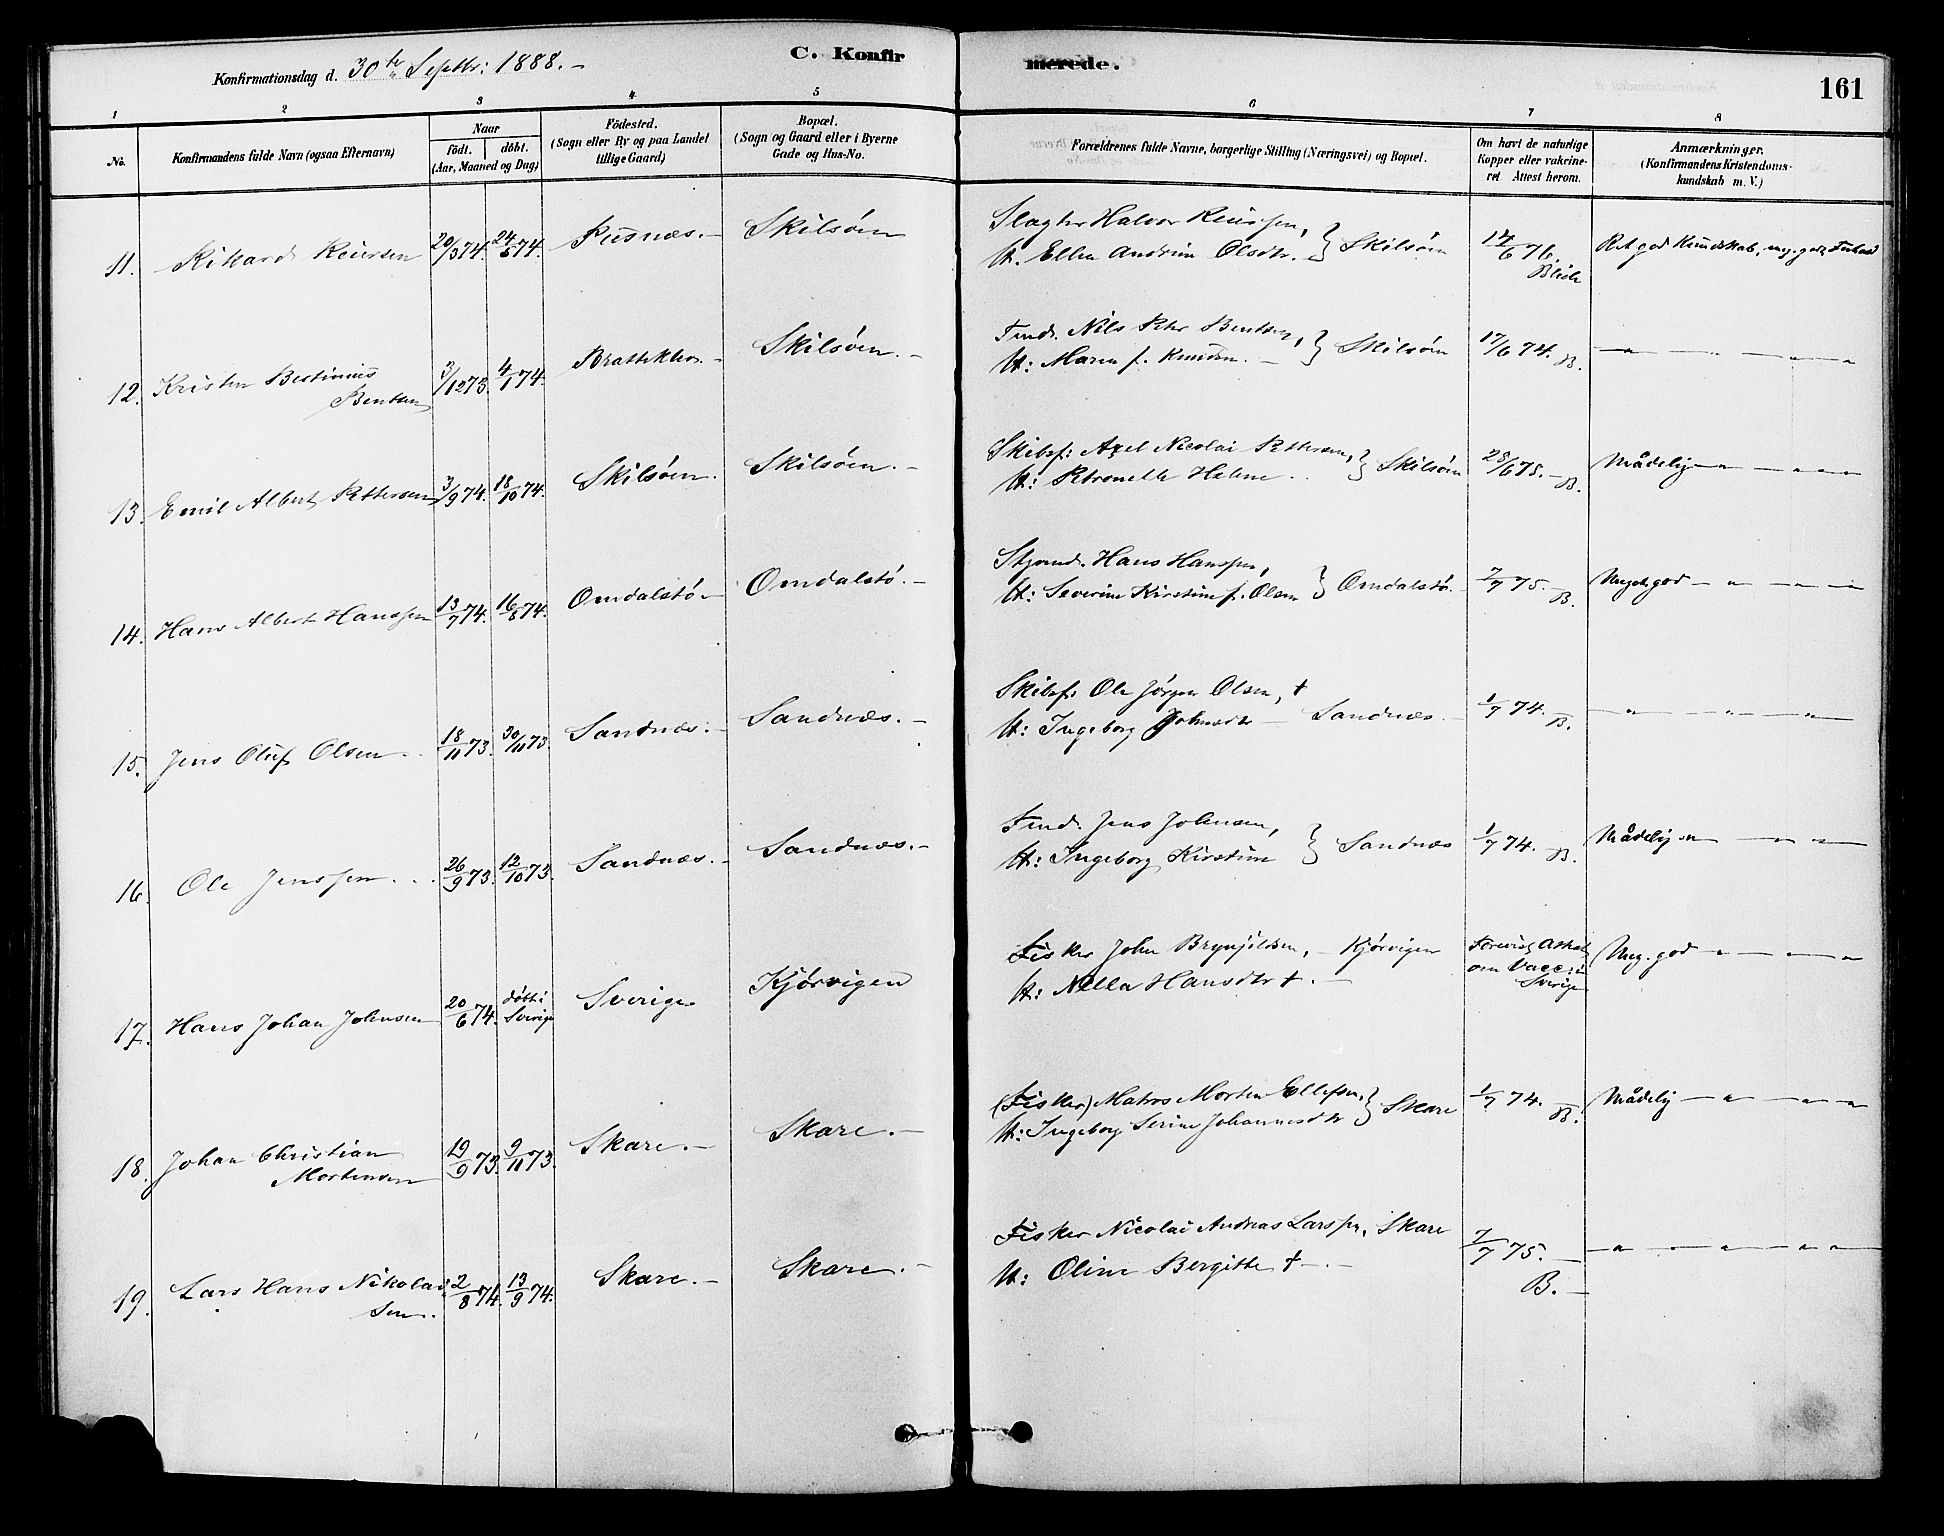 Konfirmationsdag d. 30te Septbr: 1888. –
C. Konfir
merede.
161
1 2 3 4 5 6 7 8
No. Konfirmandens fulde Navn (ogsaa Efternavn)
Naar
födt. döbt.
(Aar, Maaned og Dag)
Födested.
(Sogn eller By og paa Landet
tillige Gaard)
Bopæl.
(Sogn og Gaard eller i Byerne
Gade og Hus-No.
Forældrenes fulde Navne, borgerlige Stilling (Næringsvei) og Bopæl.
Om havt de naturlige
Kopper eller vakcine-
ret Attest herom.
Anmærkninger.
(Konfirmandens Kristendoms-
kundskab m. V.)
11. Rikard Reiersen 20/3 74. 24/5 74. Pusnæs. – Skilsöen
Slagter Halvor Reiersen, } Skilsöen
H. Ellen Andrine Olsdtr.
14/6 76. Blich
Ret god Kundskab, meg. god Forhold
12. Kristen Bestinius
Bentsen
3/12 73. 4/1 74. Brattekleiv. – Skilsöen. –
Tmd. Nils Peter Bentsen, } Skilsöen
H: Maren f. Knudsen. –
17/6 74. B.
– " – " – " – " –
13. Emil Albert Pettersen 3/9 74. 18/10 74. Skilsöen. Skilsöen. –
Skibsf: Axel Nicolai Pettersen, } Skilsöen
H: Petronelle Helene
28/6 75. – B.
Mådelig – " – " – " –
14. Hans Albert Hanssen 13/7 74. 16/8 74. Omdalstö – Omdalstö. –
Styrmd. Hans Hanssen, } Omdalstö.
H: Severine Kirstine f. Olsen
7/7 75. B.
Meget god – " – " – " –
15. Jens Oluf Olsen 18/11 73. 30/11 73. Sandnæs. – Sandnæs. –
Skibsf. Ole Jörgen Olsen, †
H: Ingeborg Johnsdtr – Sandnæs. –
1/7 74. B.
– " – " – " –
16. Ole Jenssen 26/9 73. 12/10 73. Sandnæs. – Sandnæs. –
Tmd. Jens Johnsen, } Sandnæs
H: Ingeborg Kirstine
1/7 74. B.
Mådelig – " – " – " –
17. Hans Johan Johnsen 20/6 74. döbt i
Sverige
Sverige Kjörvigen
Fisker John Brynjildsen, – Kjörvigen
H: Nella Hansdtr †. –
Forevist Attest
om Vacc: i
Sverige
Meg. god – " – " – " –
18. Johan Christian
Mortensen
19/9 73. 9/11 73. Skare. – Skare. –
(Fisker) Matros Morten Ellefsen, } Skare
H: Ingeborg Serine Johannesdtr
1/7 74. B.
Mådelig – " – " – " –
19. Lars Hans Nikolai
sen.
2/8 74. 13/9 74. Skare. – Skare. –
Fisker Nicolai Andreas Larssen, Skare
H: Oline Bergitte † –
7/7 75. –
B. –
– " – " – " – " –